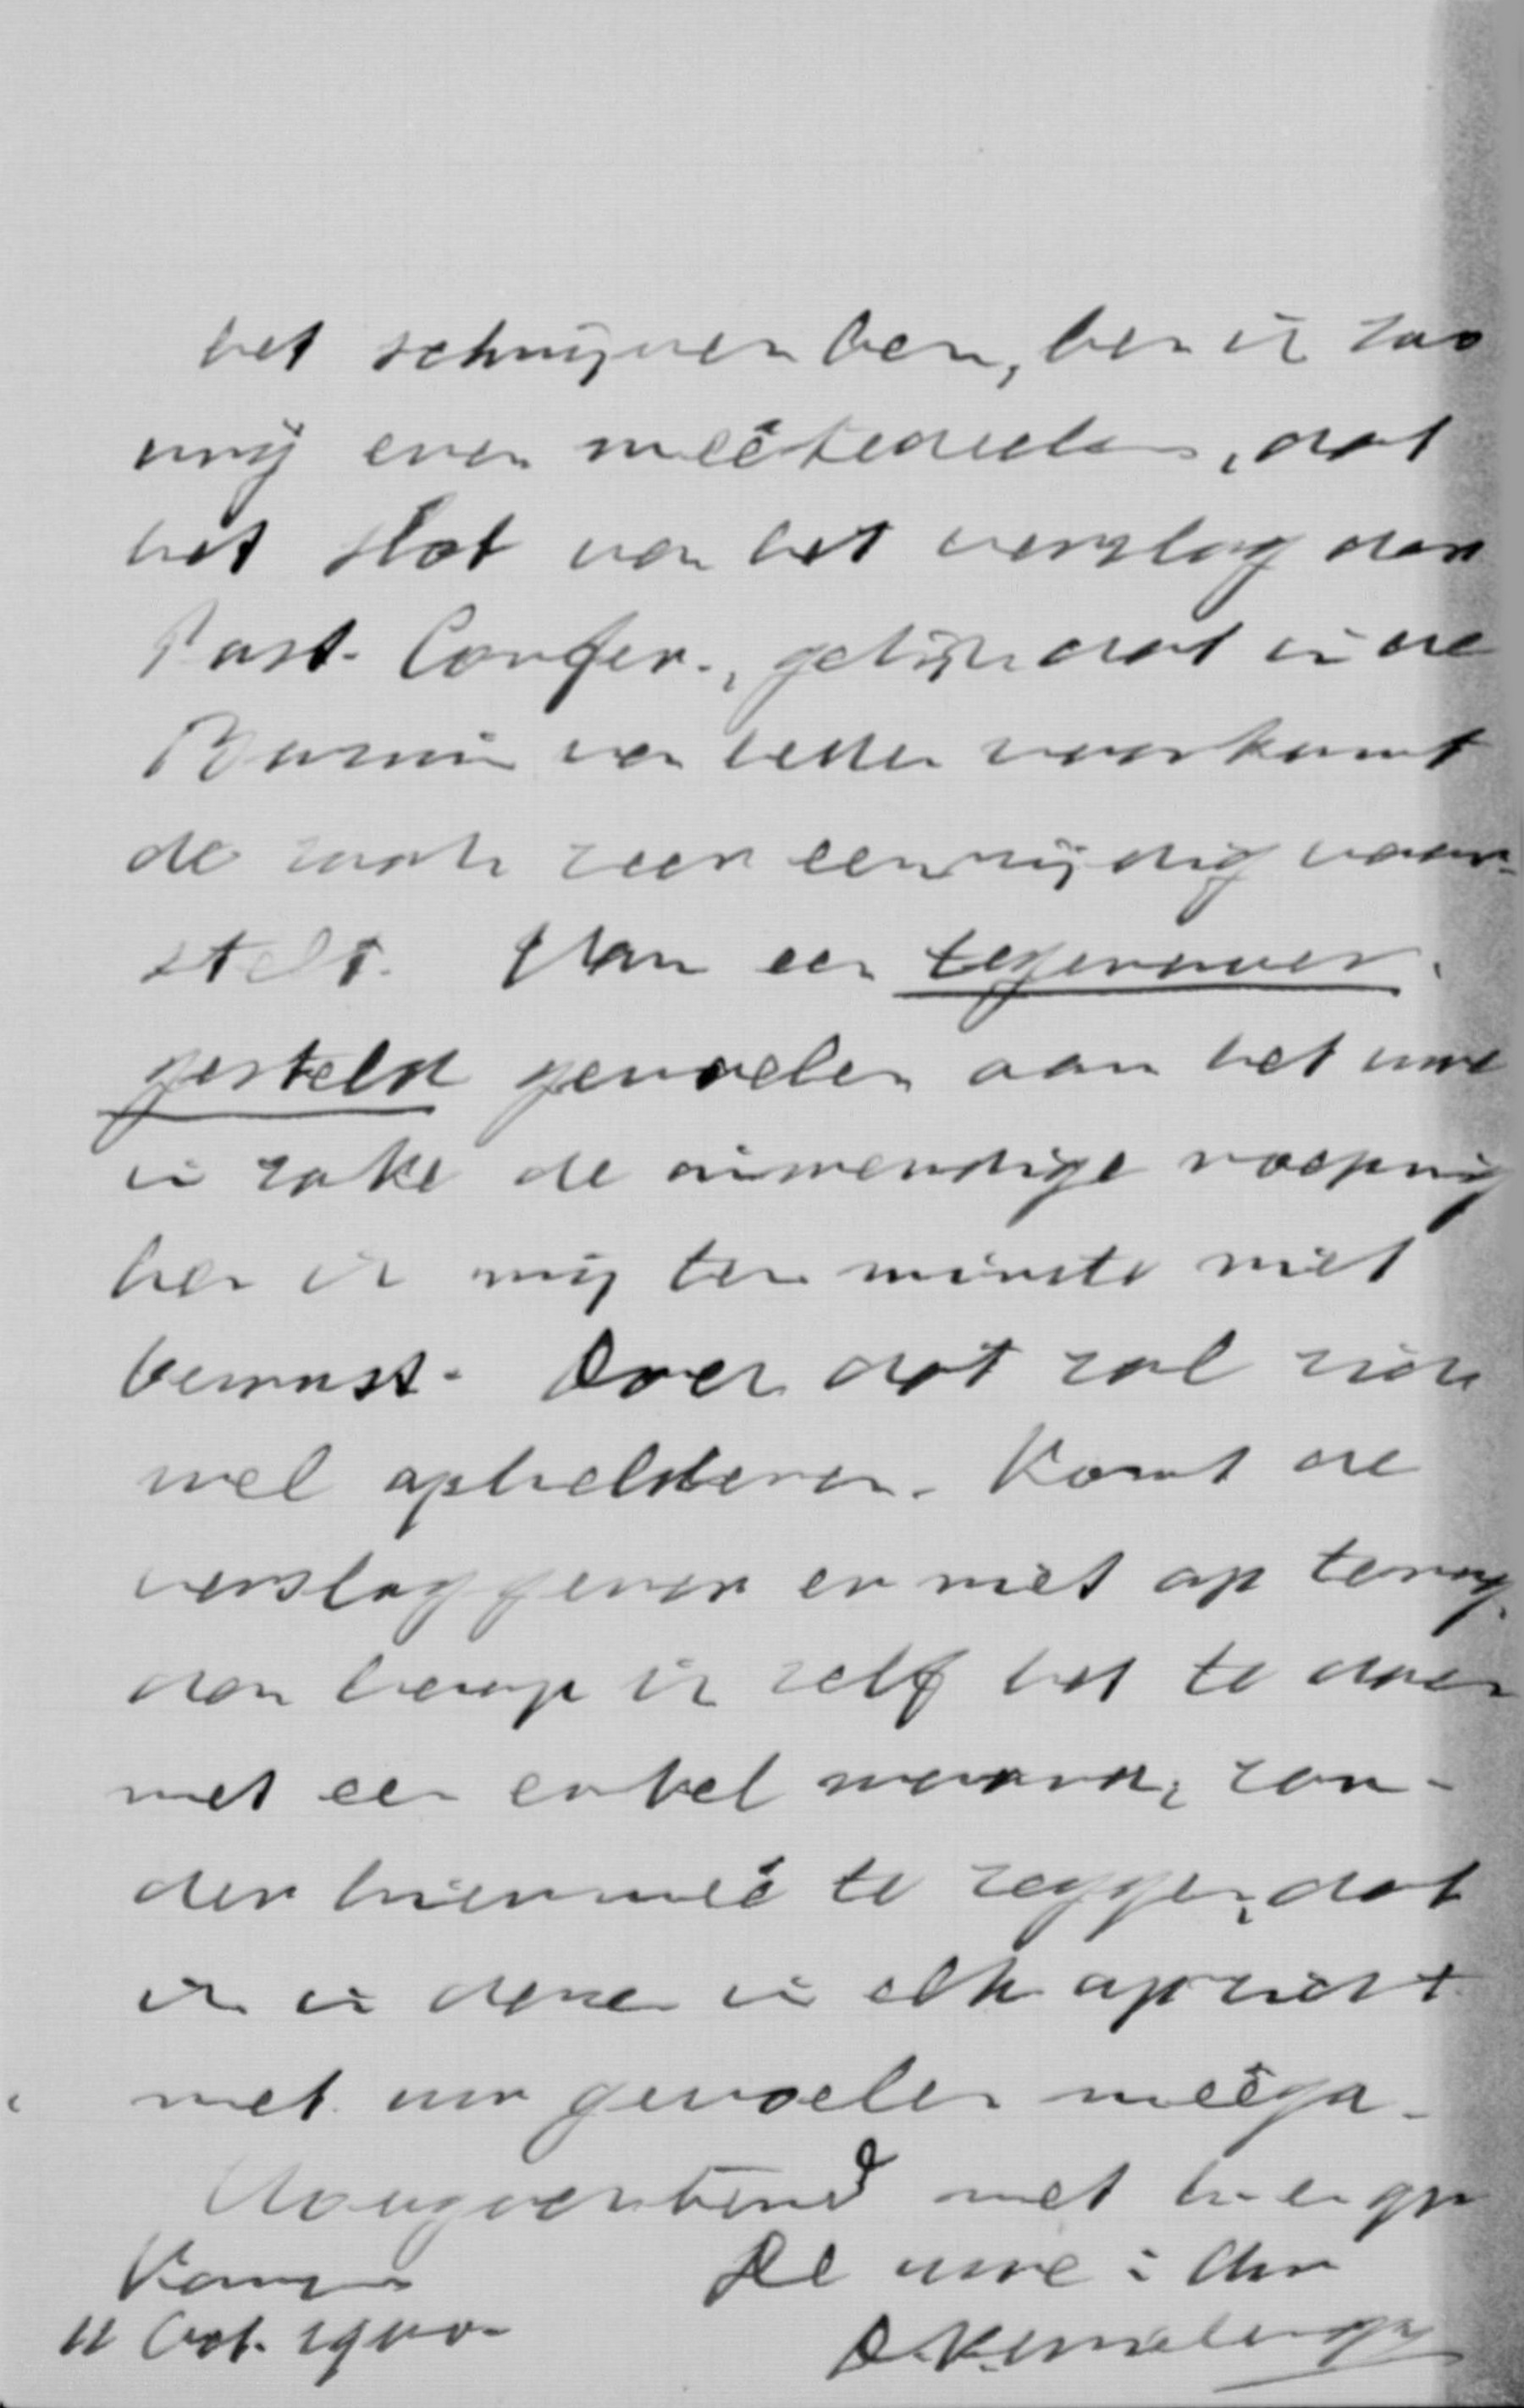 het schrijven ben, ben ik zoo
vrij even meêtedeelen, dat
het slot van het verslag der
Past. Confer., gelijk dat in de
Bazuin van heden voorkomt
de zaak zeer eenzijdig voor-
stelt. Van een tegenover-
gesteld gevoelen aan het uwe
in zake de inwendige roeping
ben ik mij ten minste niet
bewust. Doch dat zal zich
wel ophelderen. Komt de
verslaggever er niet op terug,
dan hoop ik zelf het te doen
met een enkel woord, zon-
der hiermeê te zeggen, dat
ik in deze in elk opzicht
met uw gevoelen meêga.
Hoogachtend met
Kampen De uwe in Chr
11 Oct. 1900.